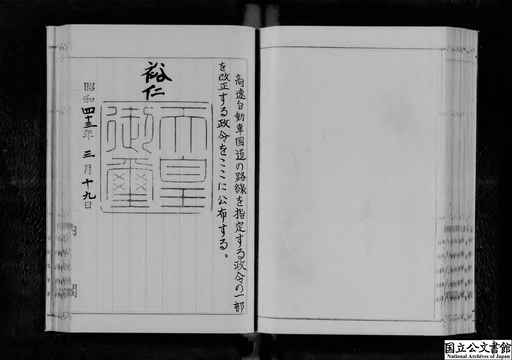 高速自動車国道の路線を指定する政令の一部
を改正する政令をここに公布する。
裕仁
天皇
御璽
昭和四十三年三月十九日
国立公文書館
National Archives of Japan